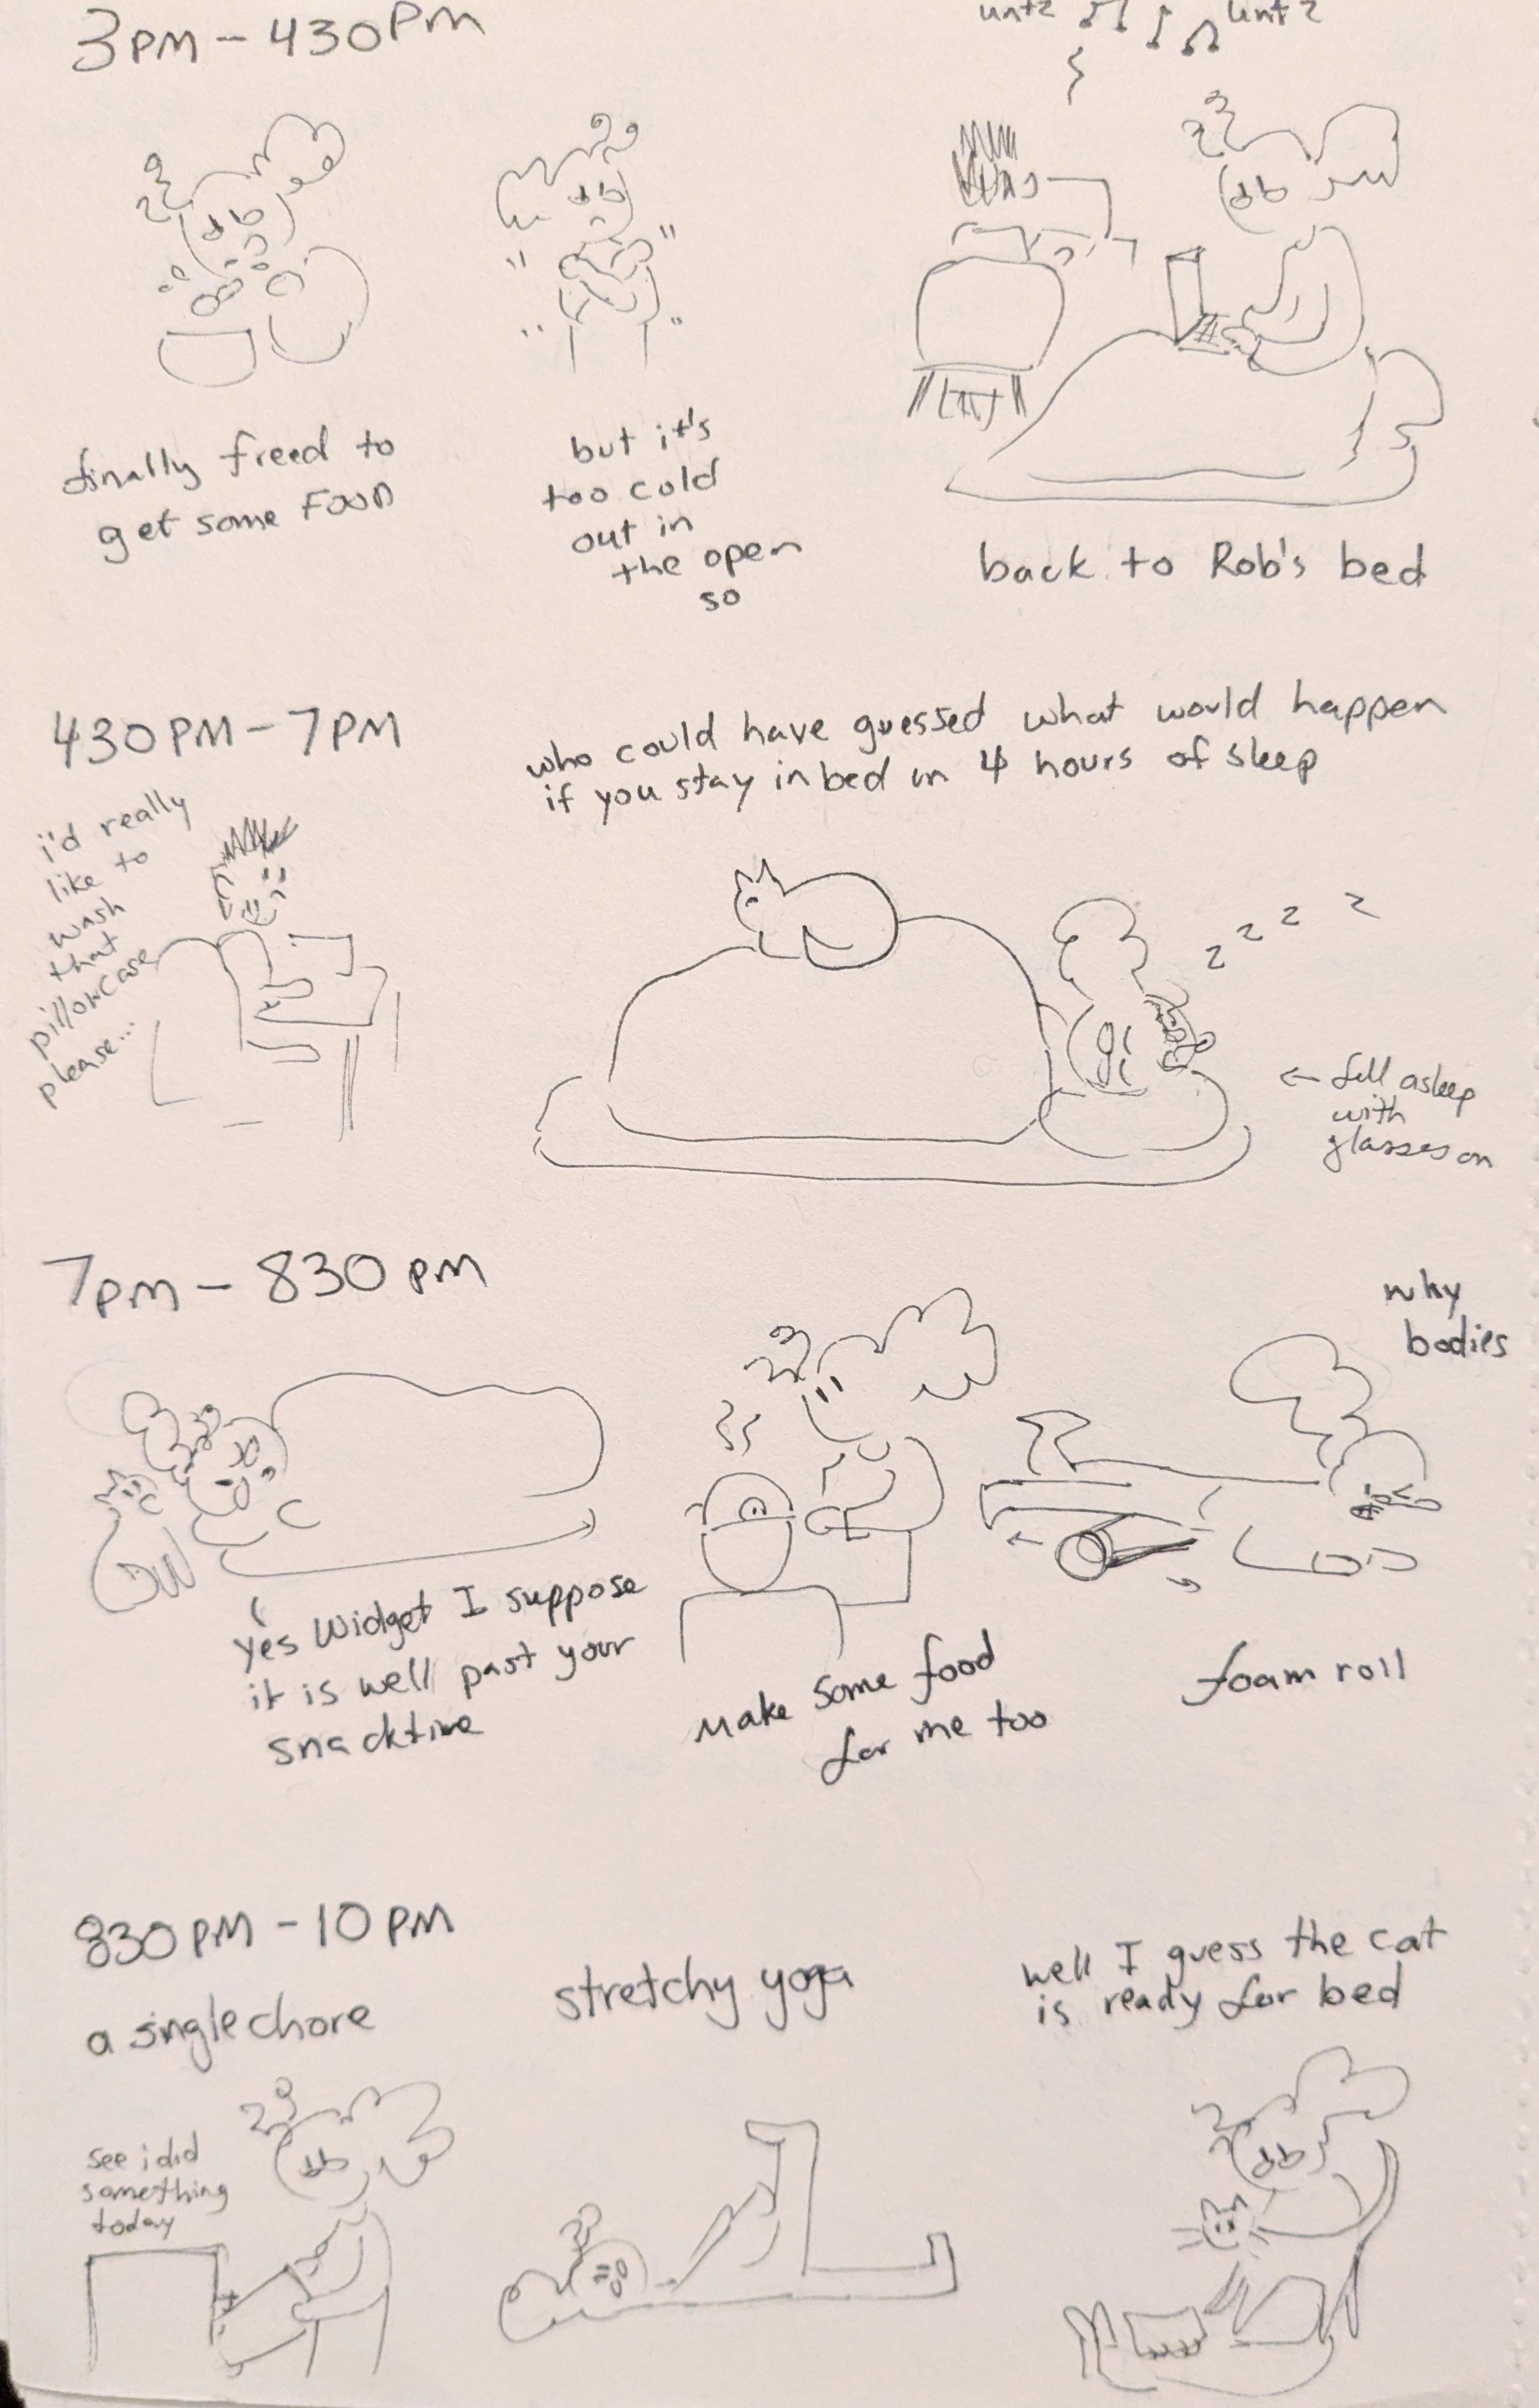 3PM - 430PM
untz
untz
finally freed to
get some FOOD
but it's
too cold
out in
the open
so
back to Rob's bed
430PM - 7PM
who could have guessed what would happen
if you stay in bed on 4 hours of sleep
i'd really
like to
wash
that
pillowcase
please...
z z z z
← fell asleep
with
glasses on
7PM - 830PM
why
bodies
yes Widget I suppose
it is well past your
snacktime
Make some food
for me too
foam roll
830PM - 10PM
a single chore
stretchy yoga
well I guess the cat
is ready for bed
see i did
something
today